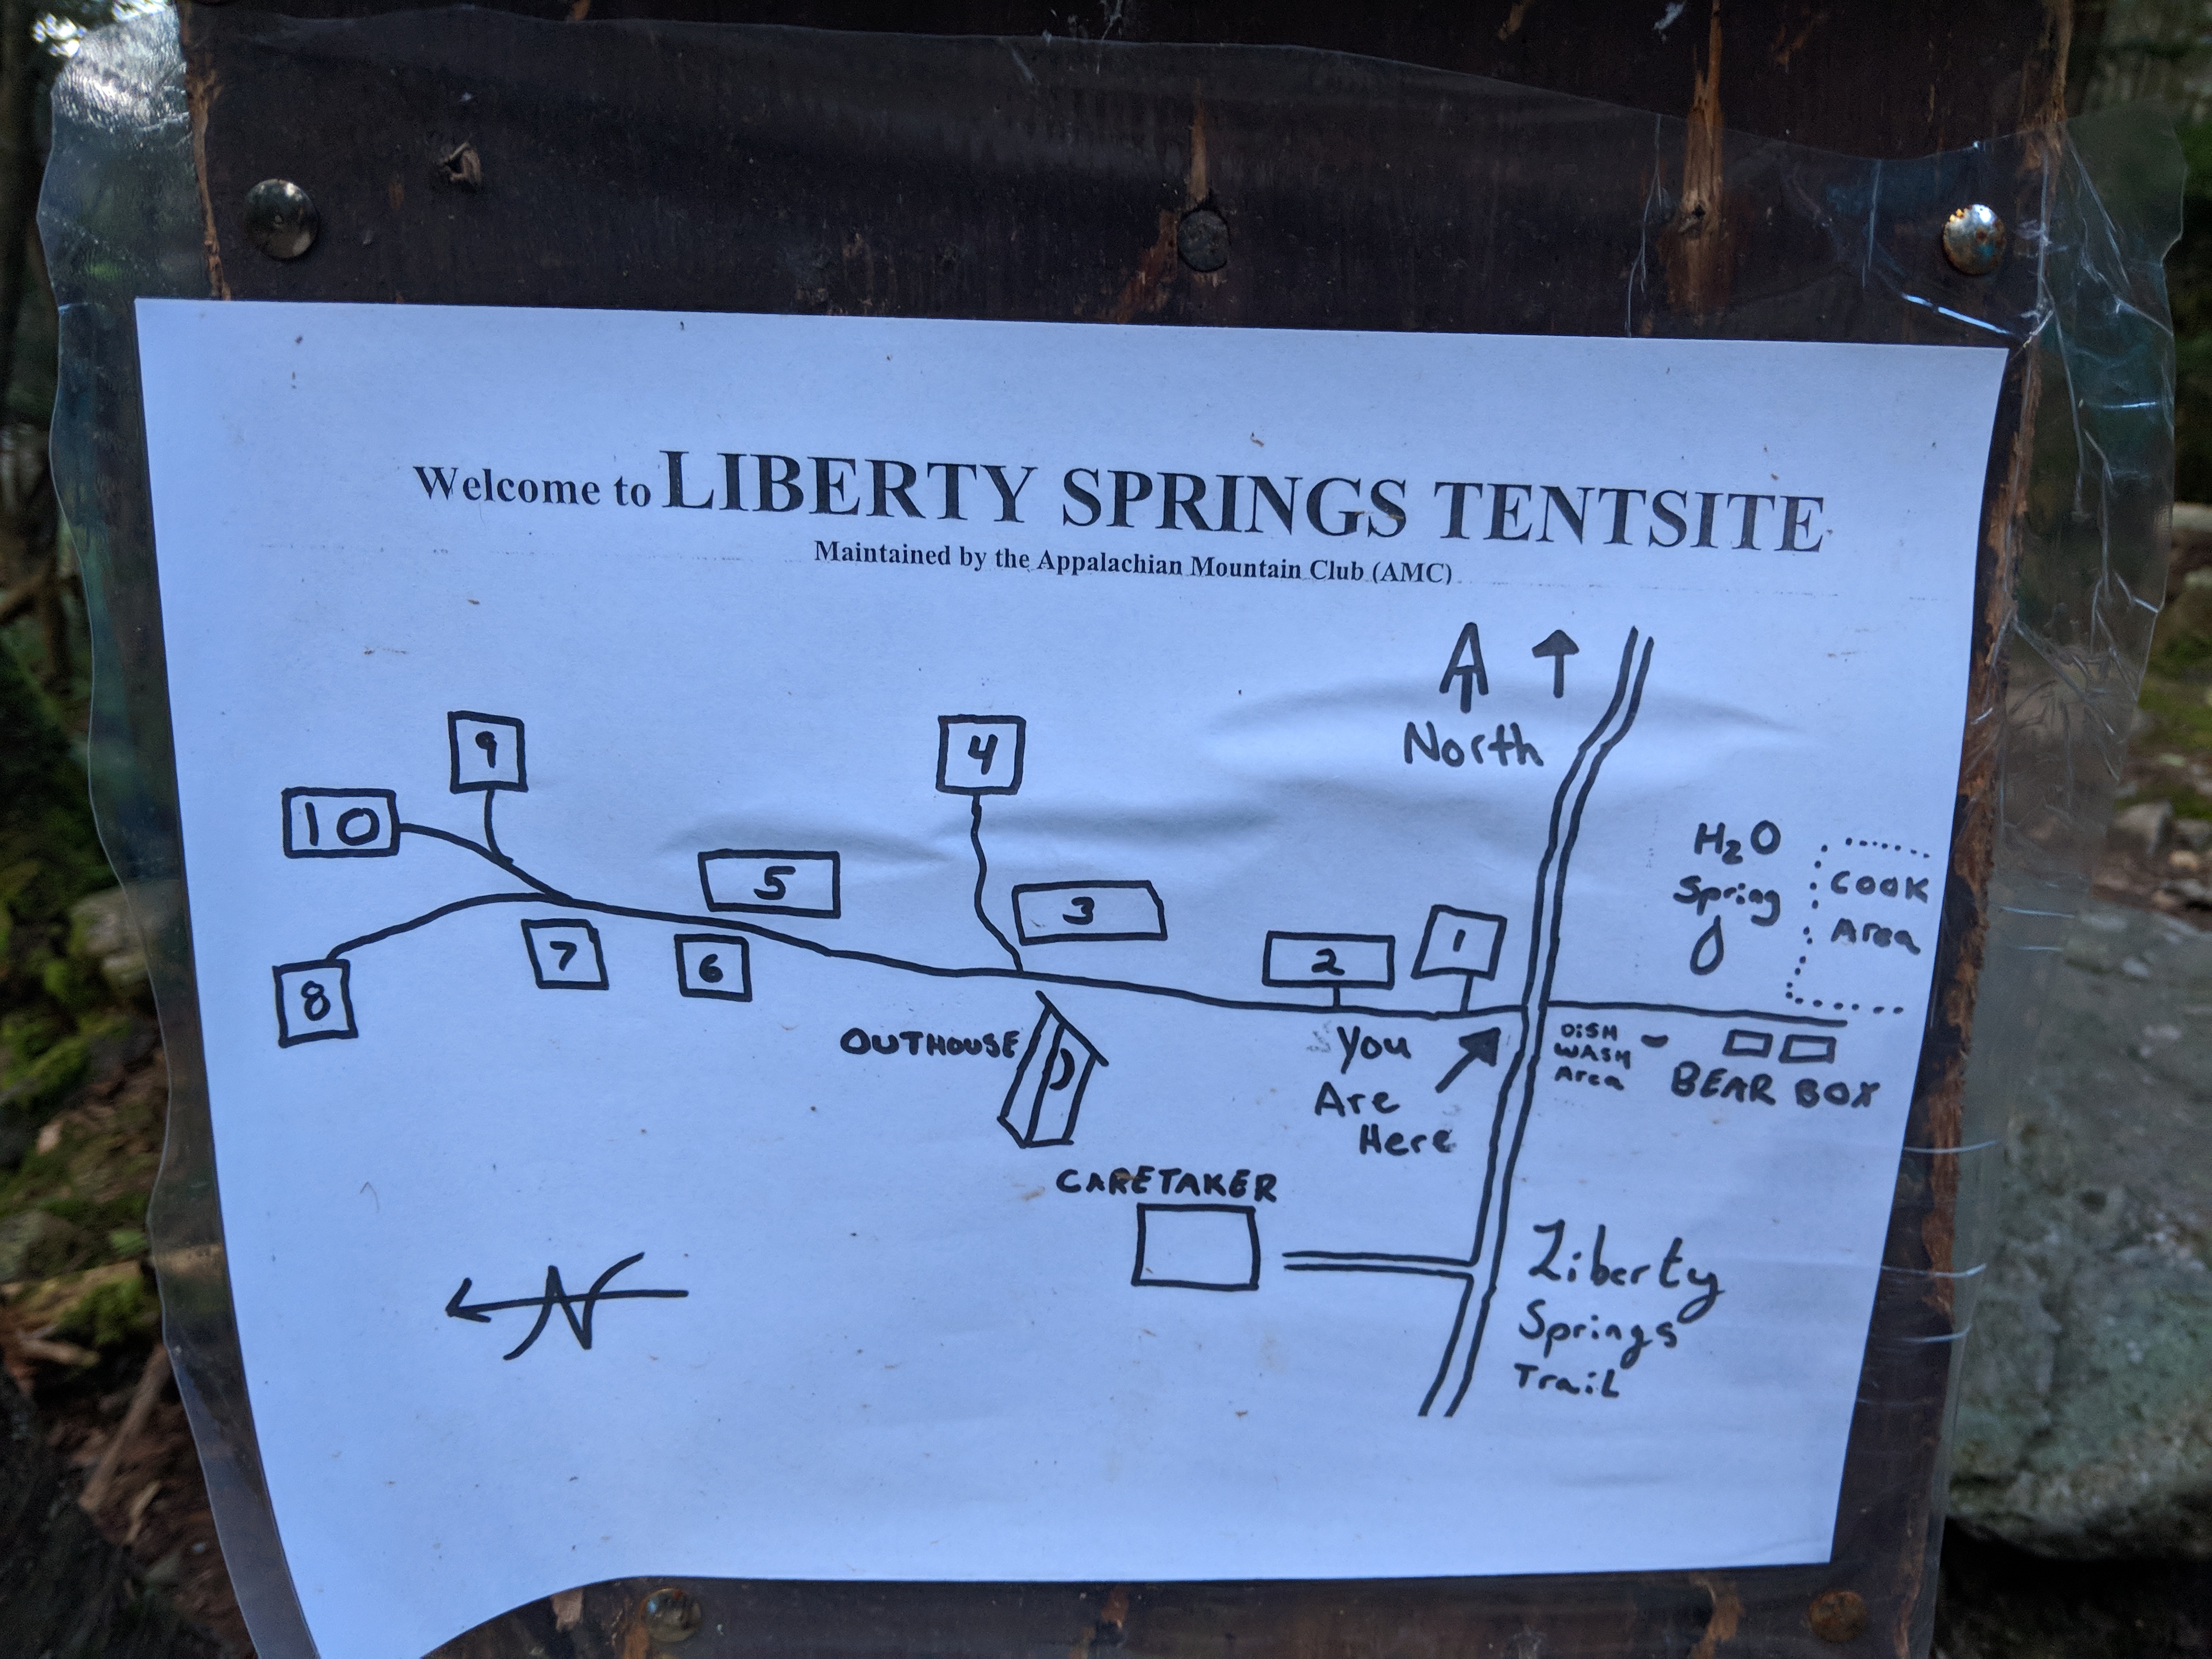 Welcome to LIBERTY SPRINGS TENTSITE
Maintained by the Appalachian Mountain Club (AMC)
North
9
4
10
5
3
2
1
7
6
8
H2O
Spring
COOK
Area
OUTHOUSE
You
Are
Here
DISH
WASH
Area
BEAR BOX
CARETAKER
N
Liberty
Springs
Trail